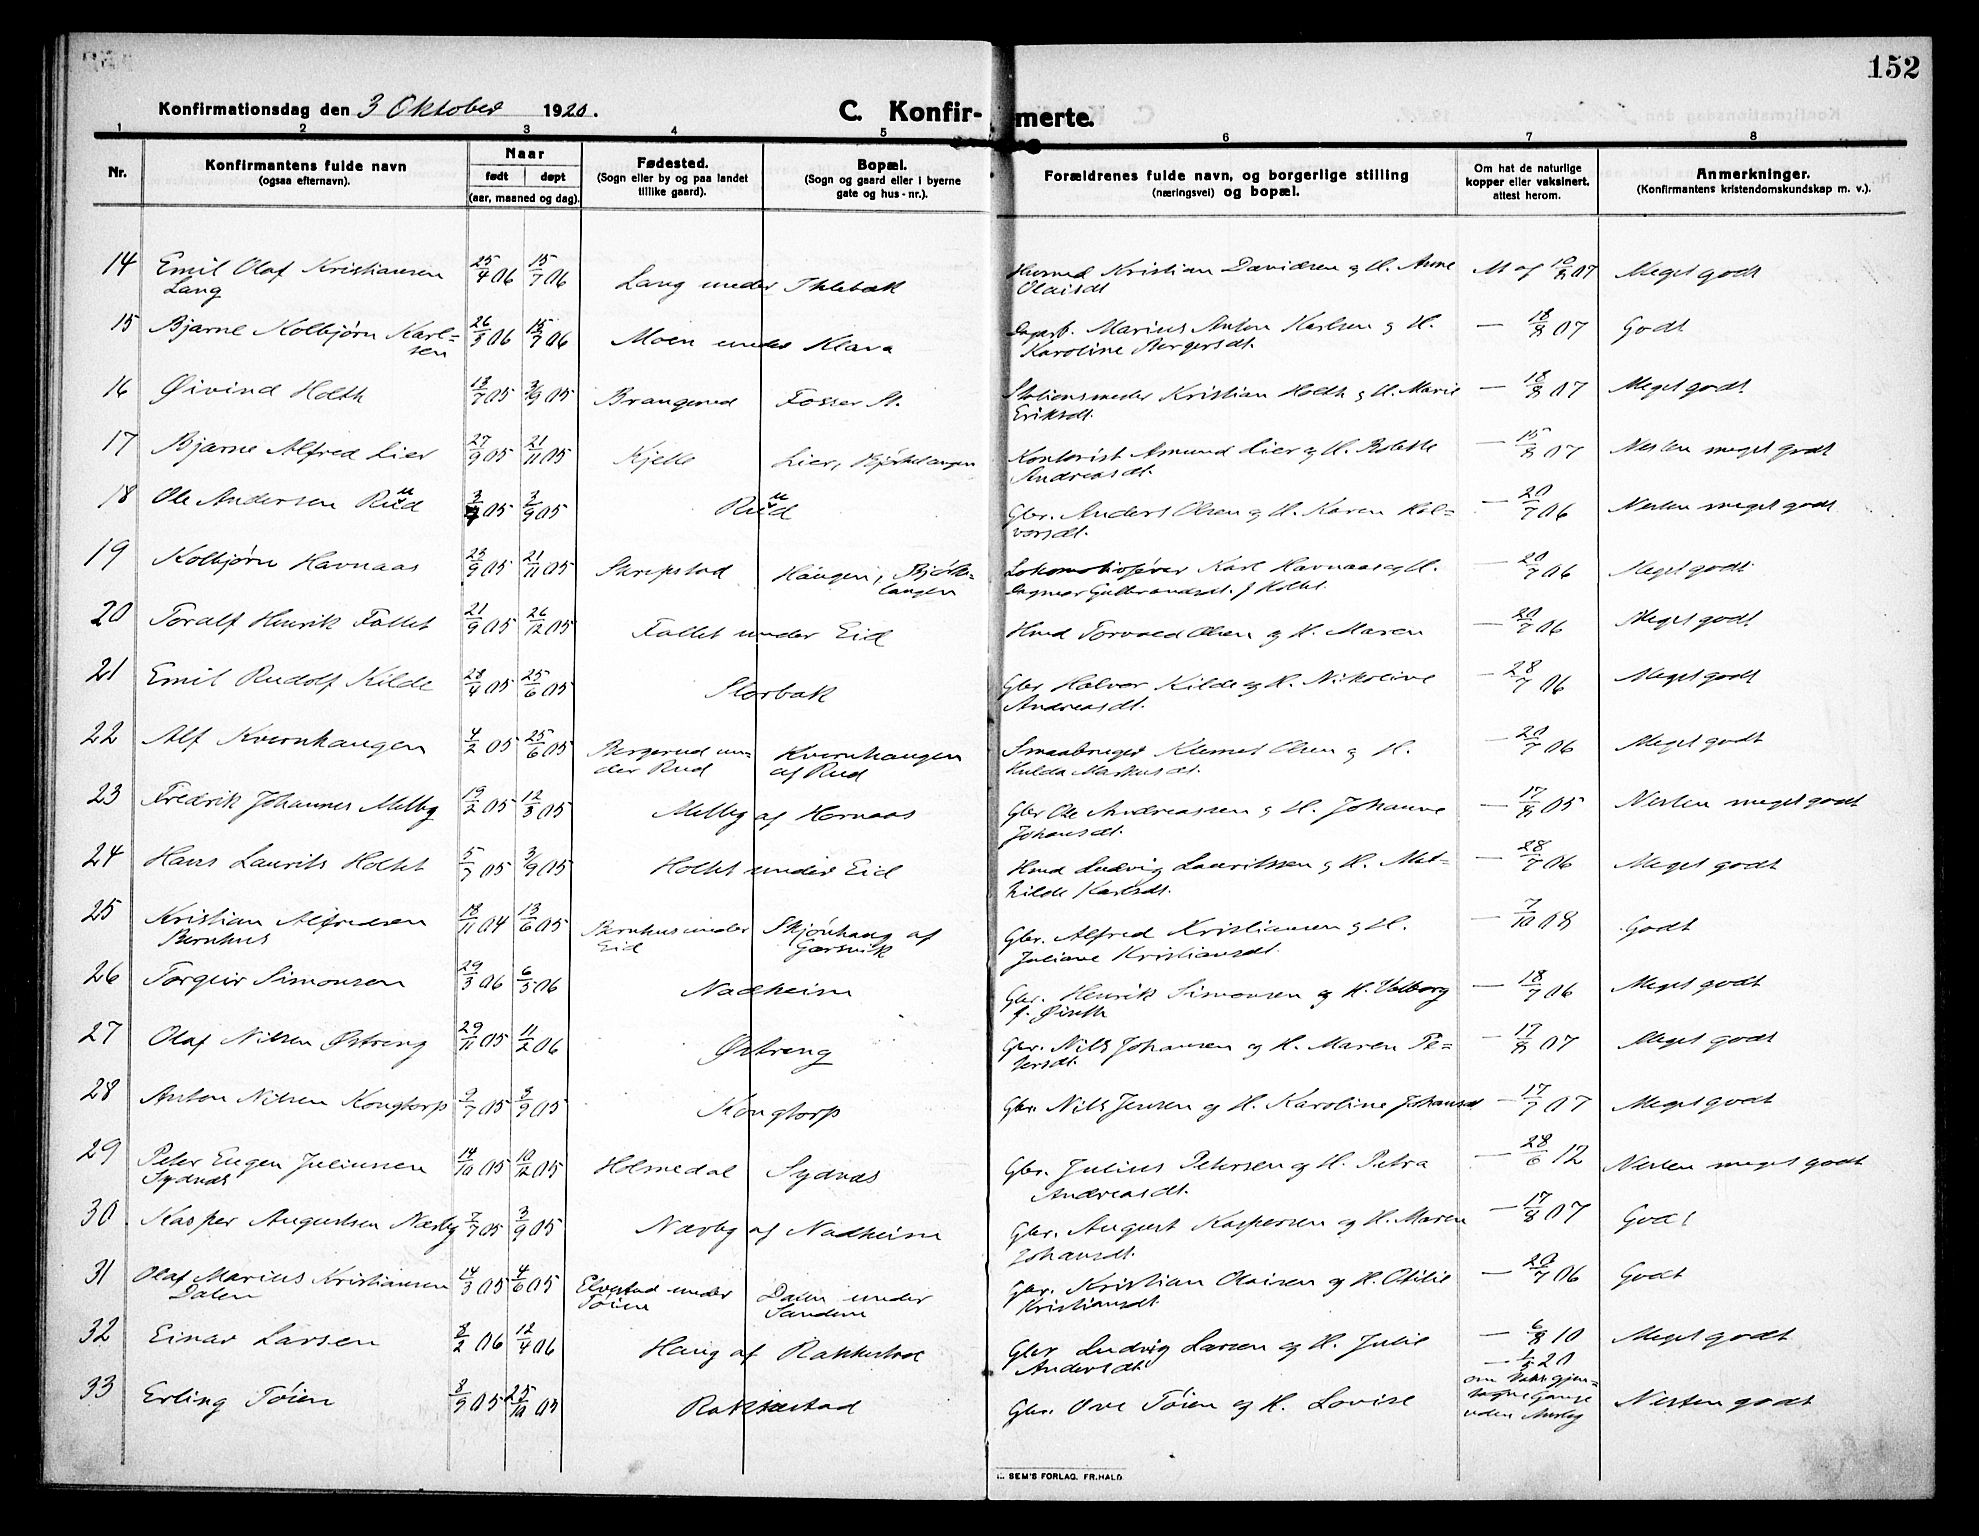 152
Konfirmationsdag den 3 Oktober 1920.
C. Konfirmerte.
1 2 3 4 5 6 7 8
Nr. Konfirmantens fulde navn (ogsaa efternavn). Naar født døpt (aar, maaned og dag). Fødested. (Sogn eller by og paa landet tillike gaard). Bopæl. (Sogn og gaard eller i byerne gate og hus-nr.). Forældrenes fulde navn, og borgerlige stilling (næringsvei) og bopæl. Om hat de naturlige kopper eller vaksinert. attest herom. Anmerkninger. (Konfirmantens kristendomskundskap m. v.).
14 Emil Olaf Kristiansen 25/4 06 15/7 06 Lang under Ihlebæk Husmd Kristian Davidsen og H. Anne At af 10/8 07 Meget godt
Lang Olaisdt
15 Bjarne Kolbjørn Karl= 26/5 06 15/7 06 Moen under Klara Marius Anton Karlsen og H. — 18/8 07 Godt
sen Karoline Aargersdt.
16 Øivind Holth 13/7 05 3/9 05 Brangerud Fosser St. Stationsmester Kristian Holth og H. Marie — 18/8 07 Meget godt
Eriksdt.
17 Bjarne Alfred Lier 27/9 05 21/11 05 Kjelle Lier, Bjørkelangen Kontorist Amund Lier og H. Bolette — 15/8 07 Nesten meget godt
Andreasdt.
18 Ole Andersen Ruud 3/7 05 3/9 05 Ruud Gbr. Anders Olsen og H. Karen Hal= — 20/7 06 Nesten meget godt
vorsdt.
19 Kolbjørn Havnaas 23/9 05 21/11 05 Skrepstad Haugen, Bjørke= Lokomotivfører Karl Havnaas og H. — 20/7 06 Meget godt
langen Dagmar Gulbrandsdt. f Holtet
20 Toralf Henrik Fallet 21/9 05 26/12 05 Fallet under Eid Husmd Torvald Olsen og H. Maren — 20/7 06 Meget godt
21 Emil Rudolf Kilde 28/4 05 25/6 05 Storbak Gbr Halvor Kilde og H. Nikoline — 28/7 06 Meget godt
Andreasdt.
22 Alf Kvernhaugen 4/2 05 25/6 05 Bergerud un= Kvernhaugen Smaabruger Klemet Olsen og H. — 20/7 06 Meget godt
der Rud af Rud Hulda Markusdt.
23 Fredrik Johannes Melby 19/2 05 12/3 05 Melby af Hornaas Gbr Ole Andreassen og H. Johanne — 17/8 05 Nesten meget godt
Johansdt.
24 Hans Laurits Holtet 5/7 05 3/9 05 Holtet under Eid Husmd Ludvig Lauritssen og H. Mat= — 28/7 06 Meget godt
hilde Karlsdt.
25 Kristian Alfredsen 18/11 04 13/6 05 Bernhus under Skjønhaug af Gbr. Alfred Kristiansen og H. — 7/10 08 Godt
Bernhus Eid Gærsvik Juliane Kristiansdt.
26 Torgeir Simonsen 29/3 06 6/5 06 Nadheim Gbr. Henrik Simonsen og H. Valborg — 18/7 06 Meget godt
f. Øiseth
27 Olaf Nilsen Østreng 29/11 05 11/2 06 Østreng Gbr. Nils Johansen og H. Maren Pe= — 17/8 07 Meget godt
tersdt.
28 Anton Nilsen Kongtorp 2/7 05 3/9 05 Kongtorp Gbr. Nils Jensen og H. Karoline Johansd — 17/7 07 Meget godt
29 Peter Eugen Juliussen 14/10 05 10/12 05 Holmedal Sydnæs Gbr. Julius Petersen og H. Petra — 28/6 12 Nesten meget godt
Sydnæs Andreasdt.
30 Kasper Augustsen Nærby 7/7 05 3/9 05 Nærby af Nadheim Gbr. August Kaspersen og H. Maren — 17/8 07 Godt
Johansdt.
31 Olaf Marius Kristiansen 14/3 05 4/6 05 Elvestad under Dalen under Gbr. Kristian Olaisen og H. Otilie — 20/7 06 Godt
Dalen Tøien Sandem Kristiansdt.
32 Einar Larsen 8/2 06 12/4 06 Haug af Rakkestad Gbr Ludvig Larsen og H. Julie — 6/8 10 Meget godt
Andersdt.
33 Erling Tøien 8/9 05 25/10 05 Rakkestad Gbr. Ove Tøien og H. Lovise — 1/5 20 om Vaks. gjen= tagne Gange uden Anslag Nesten godt
SEM'S FORLAG. FR.HALD